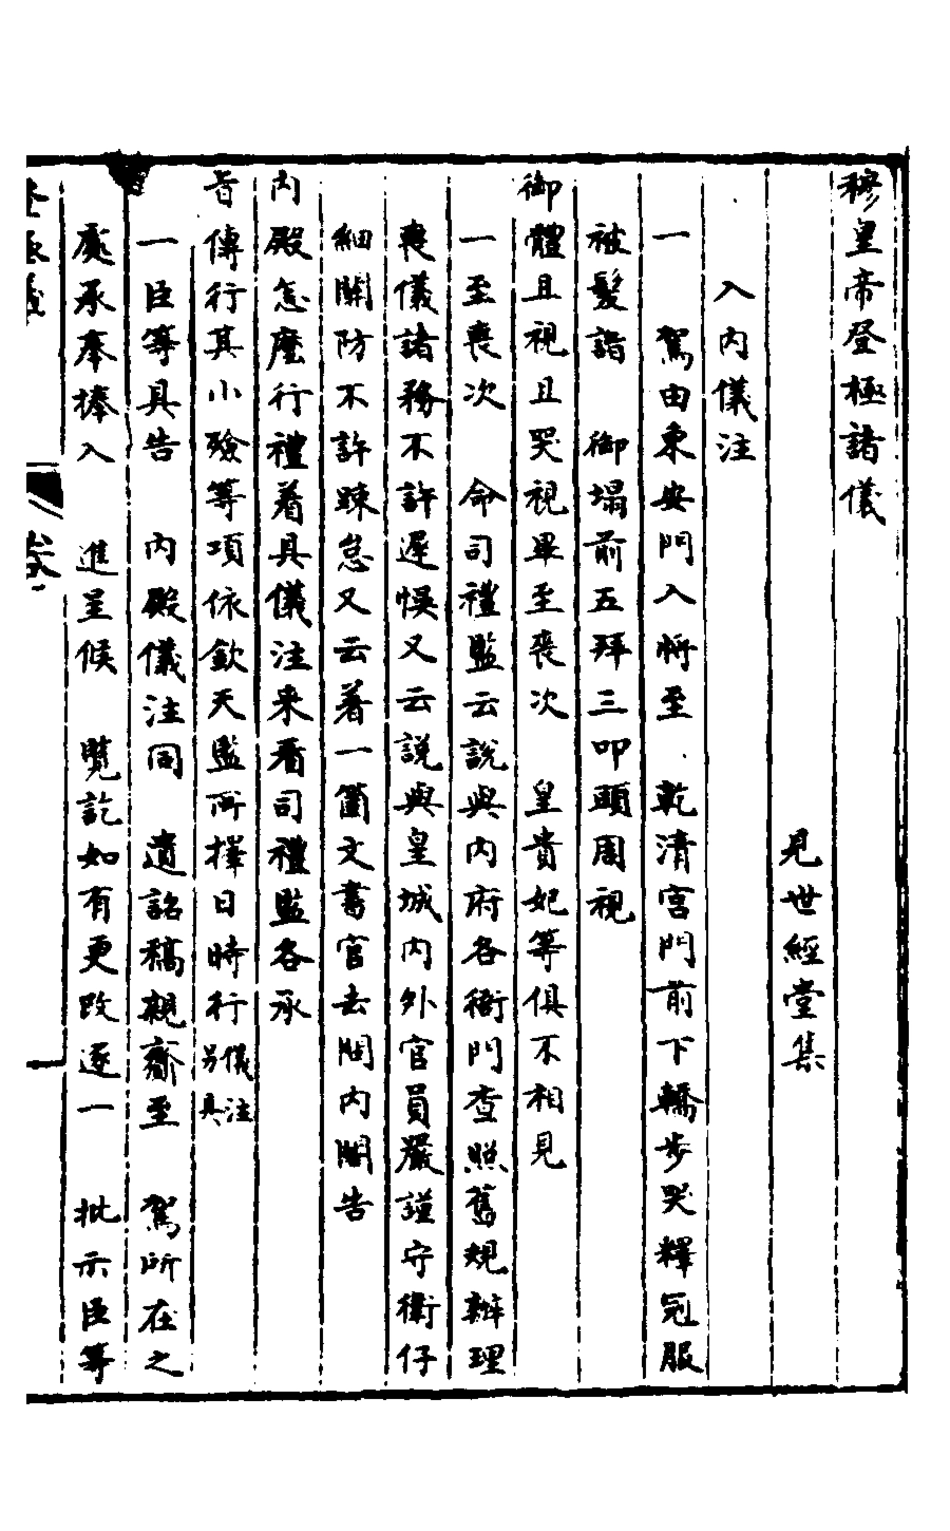 穆皇帝登極諸儀
見世經堂集
入內儀注
一　駕由東安門入將至　乾清宮門前下轎步哭釋冠服
被髮詣　御塌前五拜三叩頭周視
御體且視且哭視畢至喪次　皇貴妃等俱不相見
一至喪次　命司禮監云說與內府各衙門查照舊規辦理
喪儀諸務不許遲悞又云說與皇城內外官員嚴謹守衛仔
細關防不許踈怠又云着一箇文書官去閤內開告
內殿怎麼行禮着具儀注來看司禮監各承
旨傳行其小殮等項依欽天監所擇日時行儀注另具
一臣等具告　內殿儀注同　遺詔稿親齎至　駕所在之
處承奉捧入　進呈候　覽訖如有更改逐一　批示臣等
登極儀　卷一